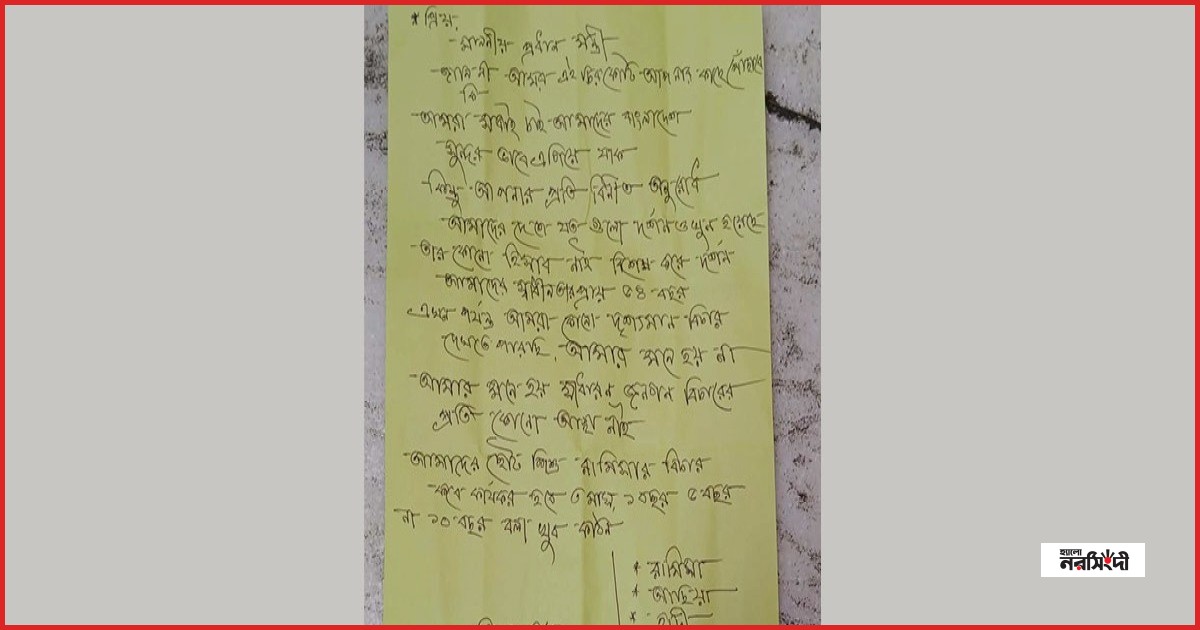 * প্রিয়,
মাননীয় প্রধান মন্ত্রী
জানি না আমার এই চিরকোটি আপনার কাছে পৌঁছাবে
কি
আমরা সবাই চাই আমাদের বাংলাদেশ
সুন্দর ভাবে এগিয়ে যাক
কিন্তু আপনার প্রতি বিনীত অনুরোধ
আমাদের দেশে যত গুলো দর্শন ও খুন হয়েছে
তার কোনো হিসাব নাই বিশেষ করে দর্শন
আমাদের স্বাধীনতার প্রায় ৫৪ বছর
এখন পর্যন্ত আমরা কোনো দৃশ্যমান বিচার
দেখতে পারছি, আমার মনে হয় না
আমার মনে হয় সাধারন জনগন বিচারের
প্রতি কোনো আস্থা নাই
আমাদের ছোট শিশু রামিসার বিচার
কবে কার্যকর হবে ৩ মাস, ১ বছর ৫ বছর
না ১০ বছর বলা খুব কঠিন
* রামিসা
* আছিয়া
হ্যালো
নরসিংদী